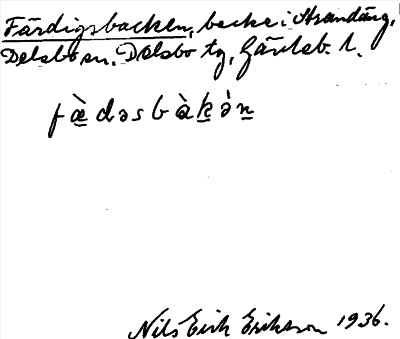 Färdigsbacken, backe i Strandäng,
Delsbo sn. Delsbo tg, Gävleb. l.
fæ̀dəsbàkə̀n
Nils Eirik Eriksson 1936.